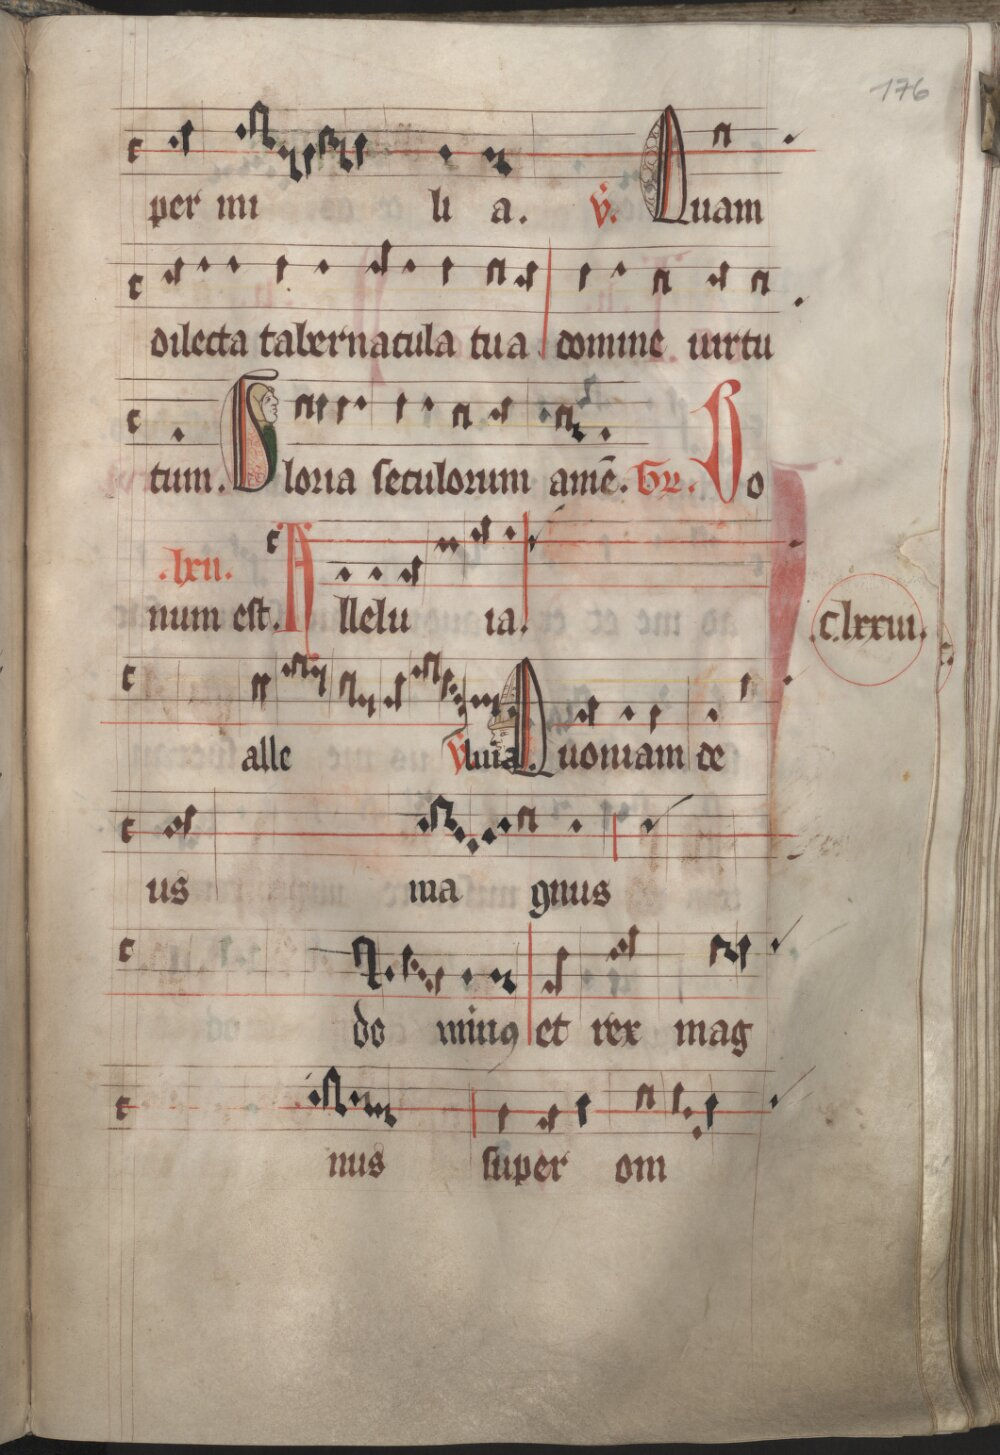 176
per mi li a. v̇. Quam
dilecta tabernacula tua domine uirtu
tum. Gloria seculorum amē. Gr. Bo
.lxii.
num est. Allelu ia.
.clxxiii.
alle luia v̇. Quoniam de
us ma gnus
do minꝯ et rex mag
nus super om